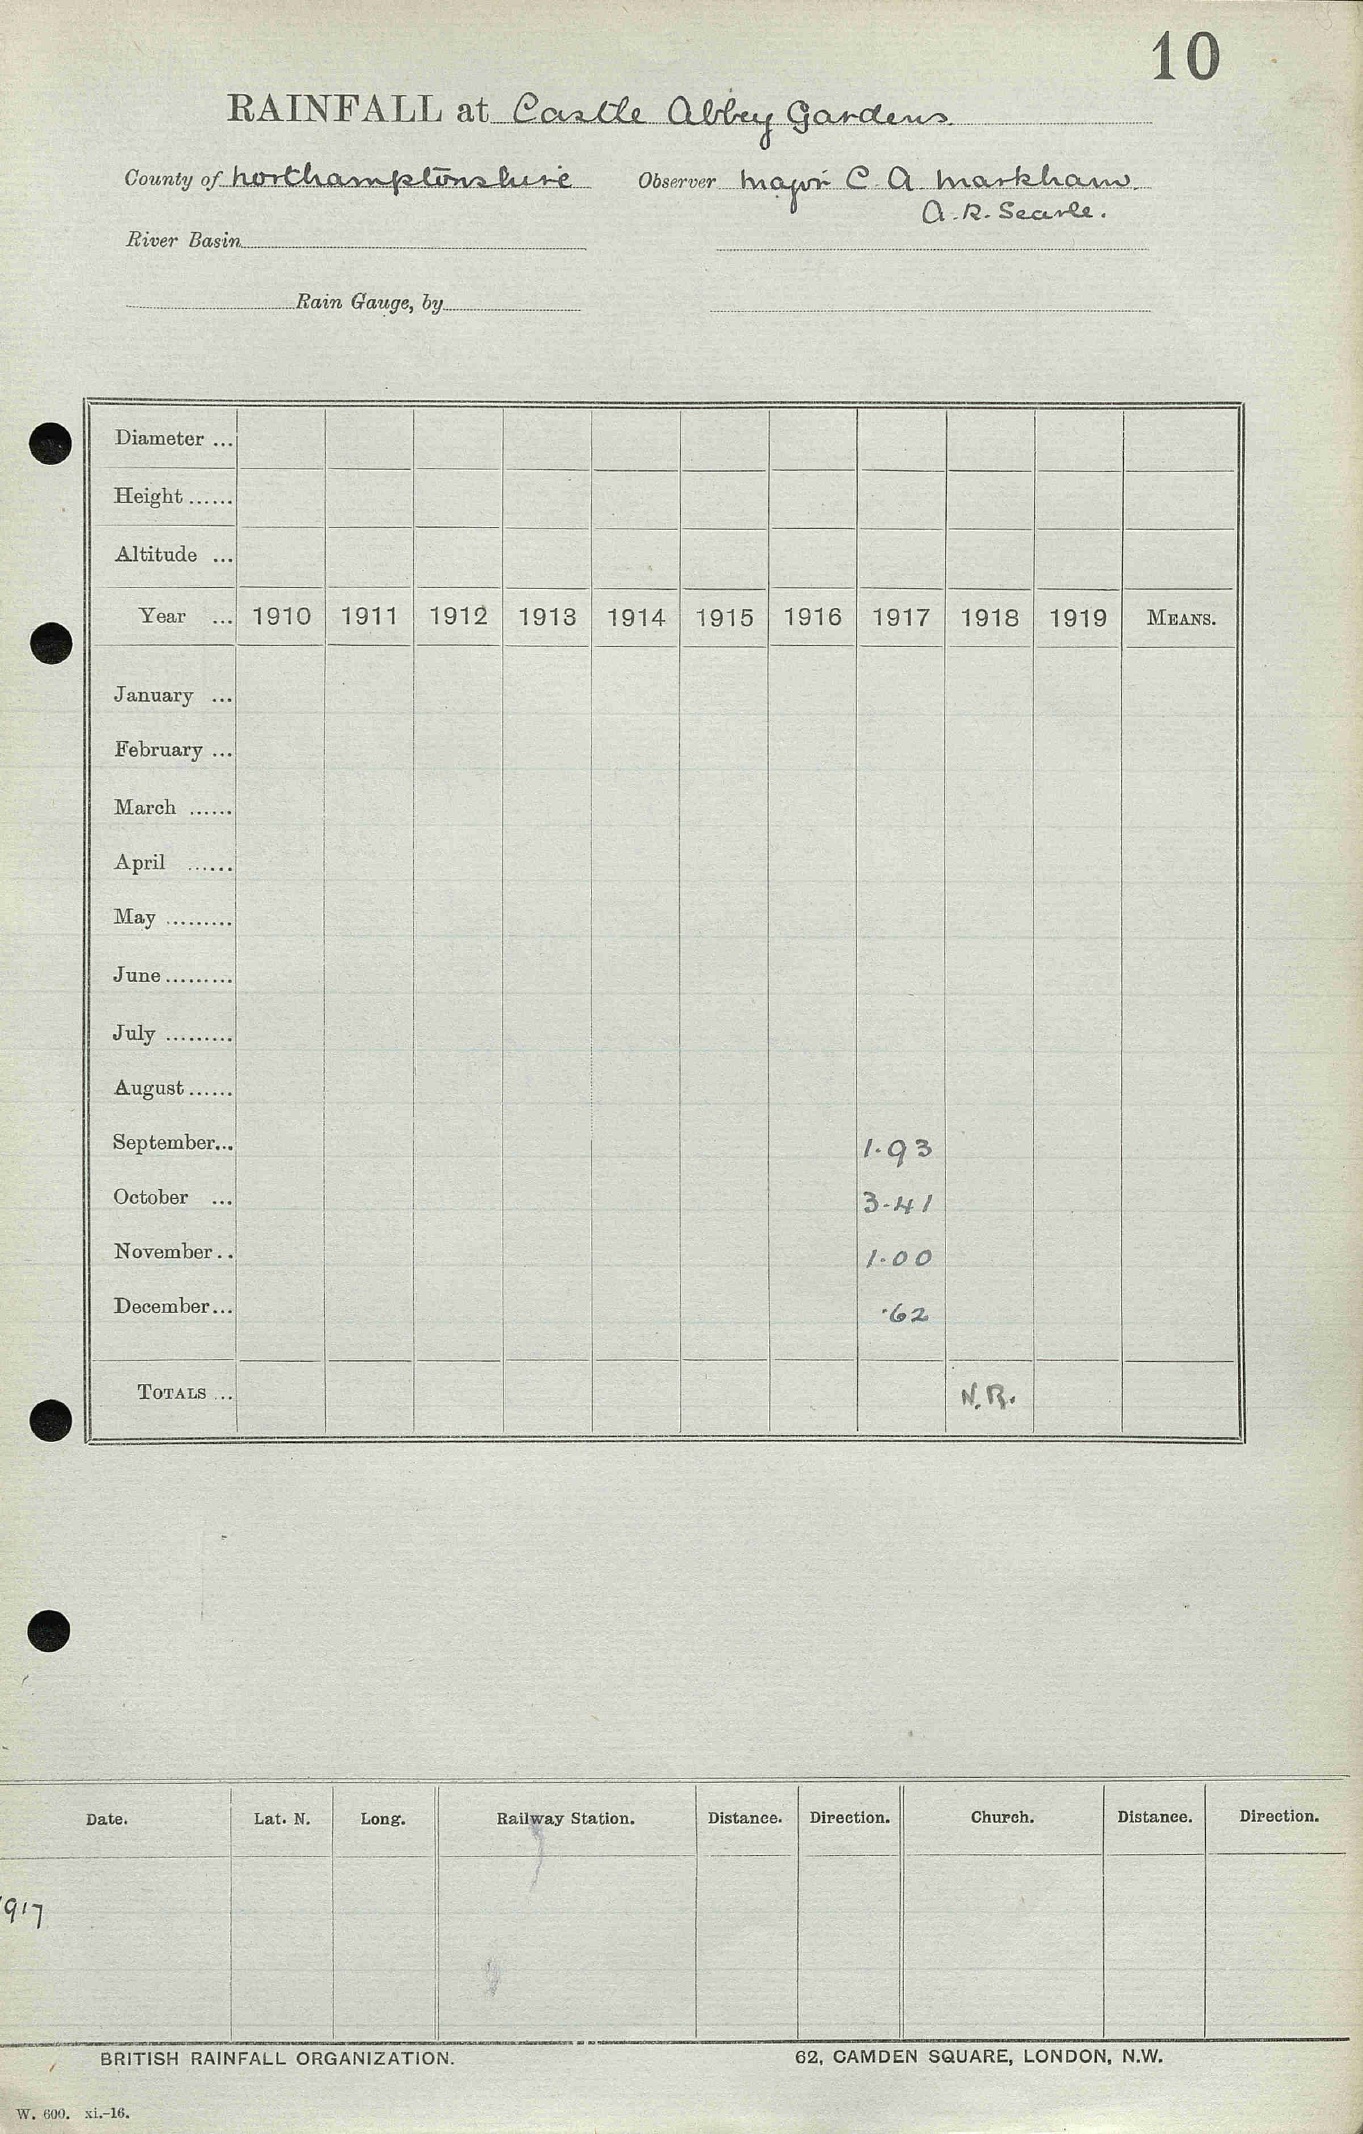 10
RAINFALL at Castle Abbey Gardens.
County of Northamptonshire Observer Major C. A. Markham.
A. R. Searle.
River Basin
Rain Gauge, by
Diameter ...
Height ......
Altitude ...
Year ... 1910 1911 1912 1913 1914 1915 1916 1917 1918 1919 MEANS.
January ...
February ...
March ......
April ......
May .........
June .........
July .........
August ......
September... 1.93
October ... 3.41
November .. 1.00
December... .62
TOTALS ... N.R.
Date. Lat. N. Long. Railway Station. Distance. Direction. Church. Distance. Direction.
1917
BRITISH RAINFALL ORGANIZATION. 62, CAMDEN SQUARE, LONDON, N.W.
W. 600. xi.-16.